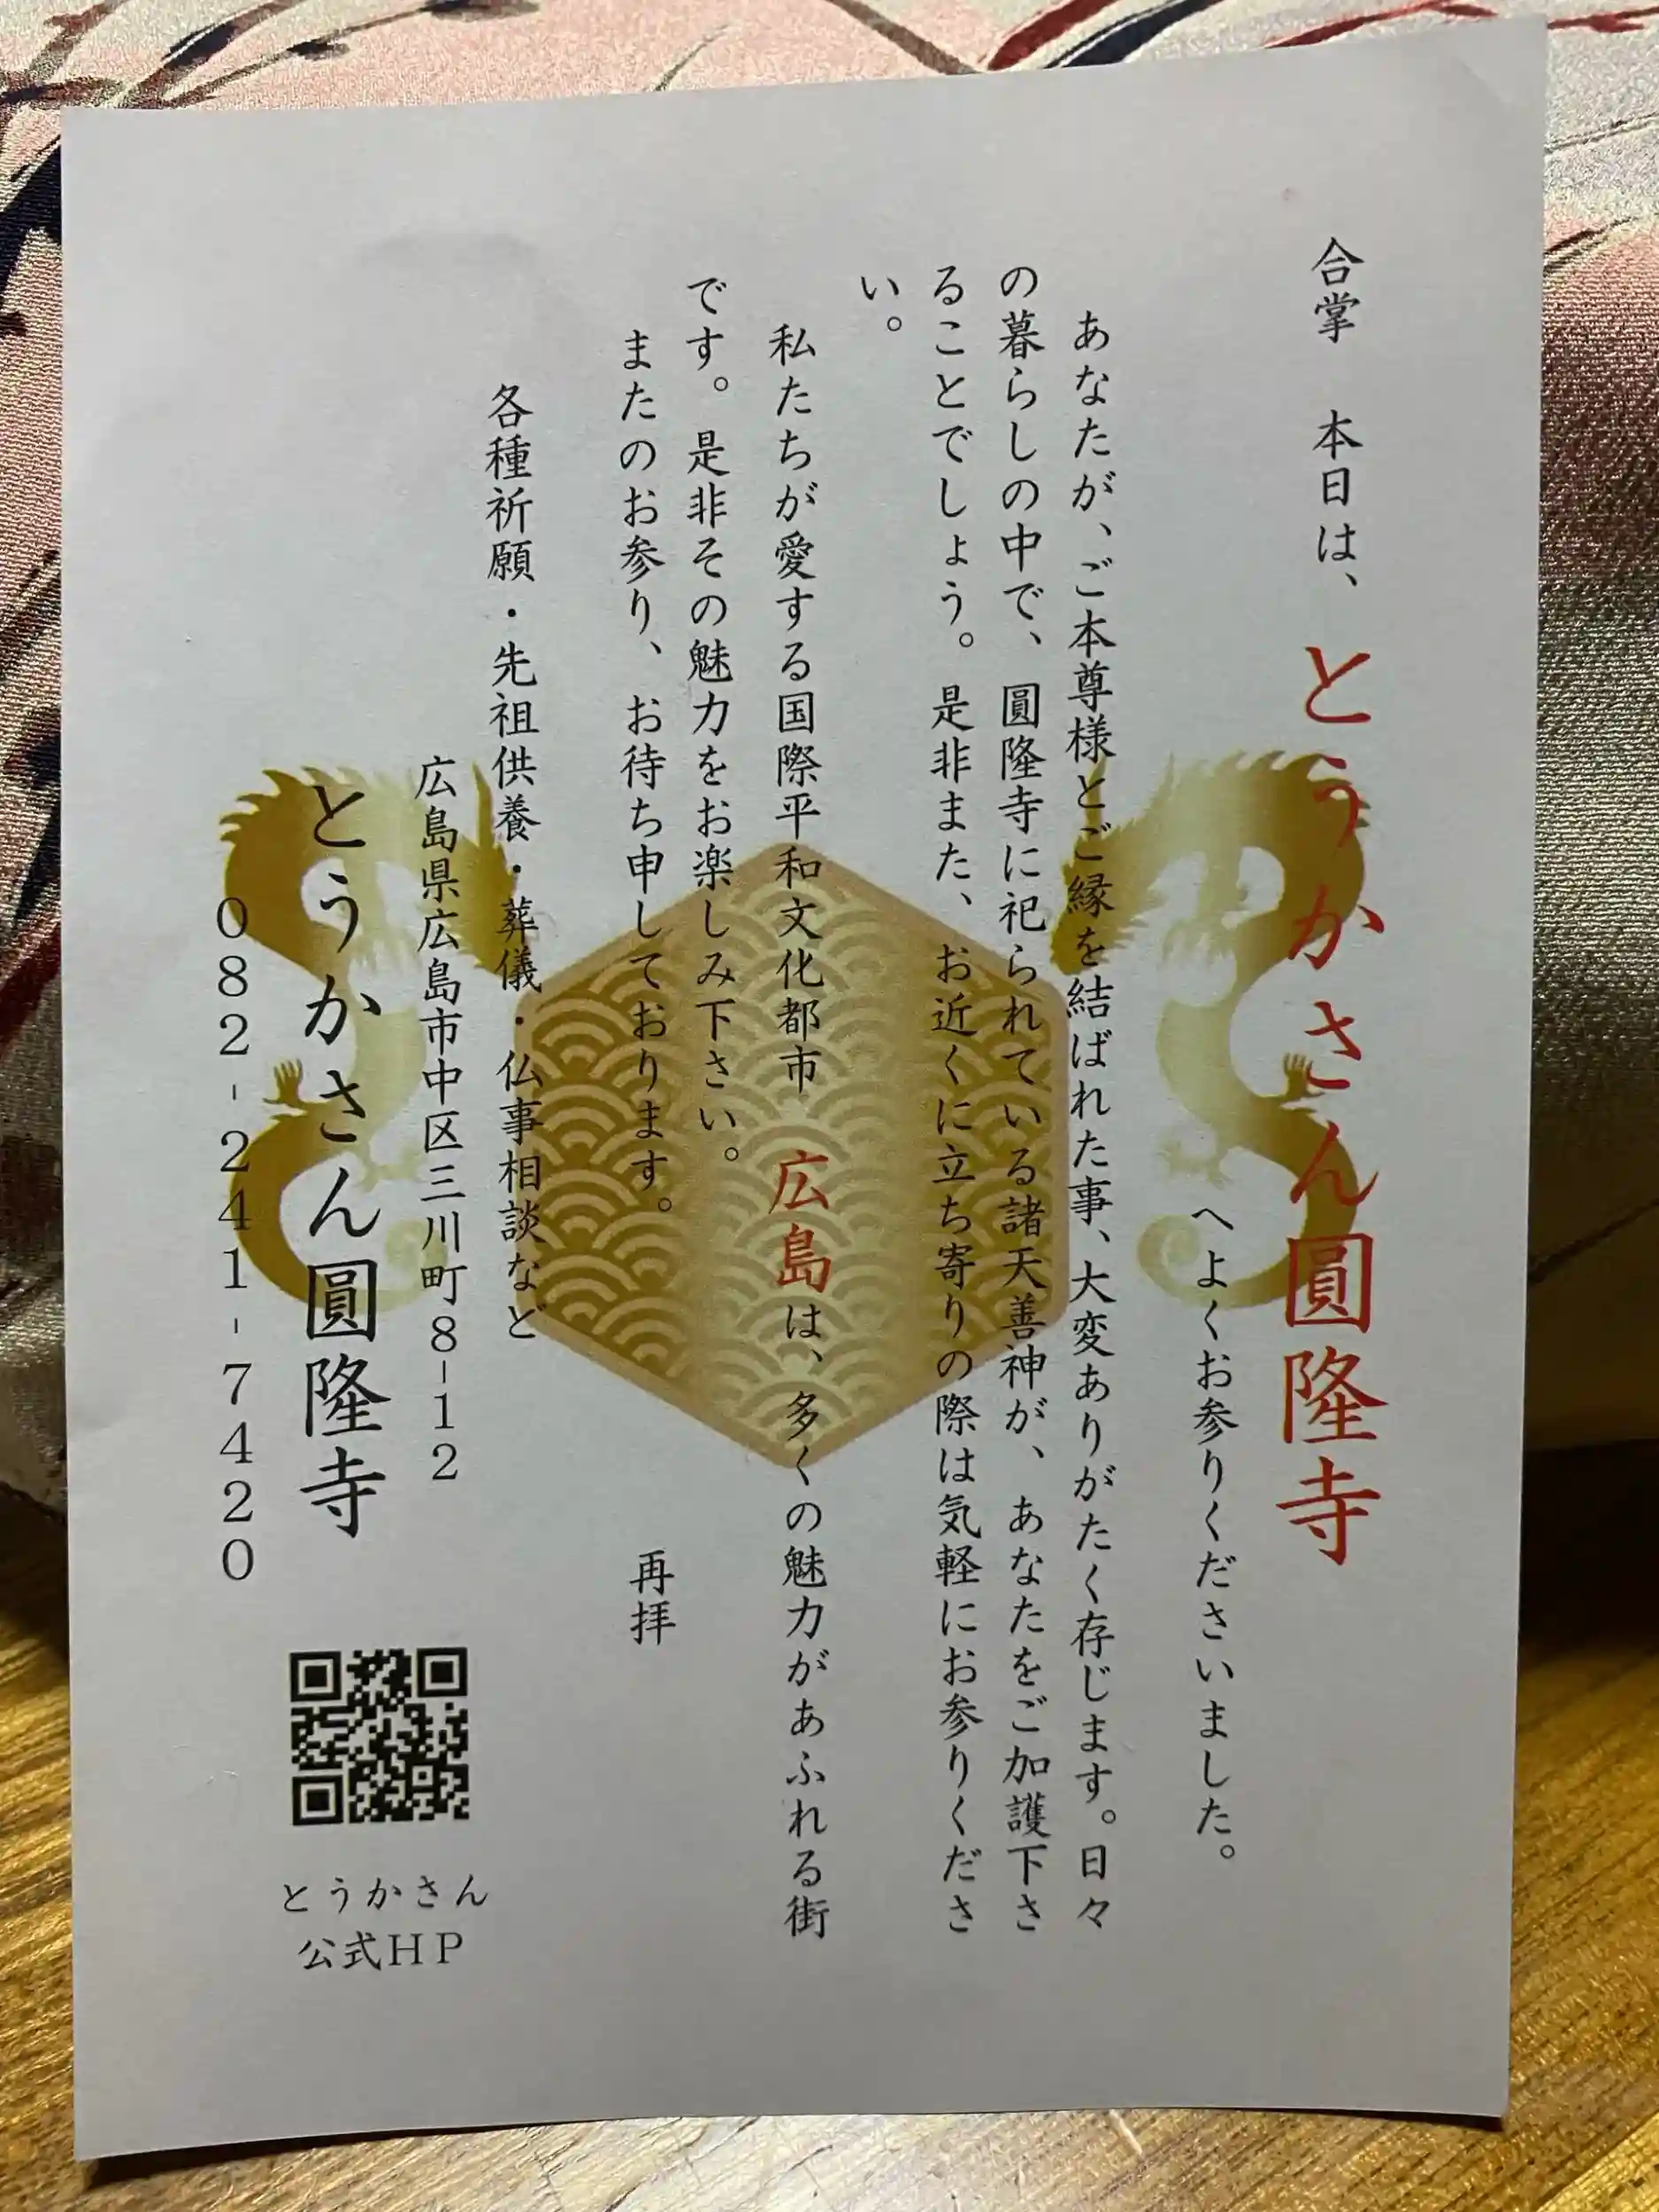 合掌　本日は、とうかさん圓隆寺
へよくお参りくださいました。
あなたが、ご本尊様とご縁を結ばれた事、大変ありがたく存じます。日々
の暮らしの中で、圓隆寺に祀られている諸天善神が、あなたをご加護下さ
ることでしょう。是非また、お近くに立ち寄りの際は気軽にお参りくださ
い。
私たちが愛する国際平和文化都市　広島は、多くの魅力があふれる街
です。是非その魅力をお楽しみ下さい。
またのお参り、お待ち申しております。　再拝
各種祈願・先祖供養・葬儀・仏事相談など
広島県広島市中区三川町8-12
とうかさん圓隆寺
082-241-7420
とうかさん
公式HP